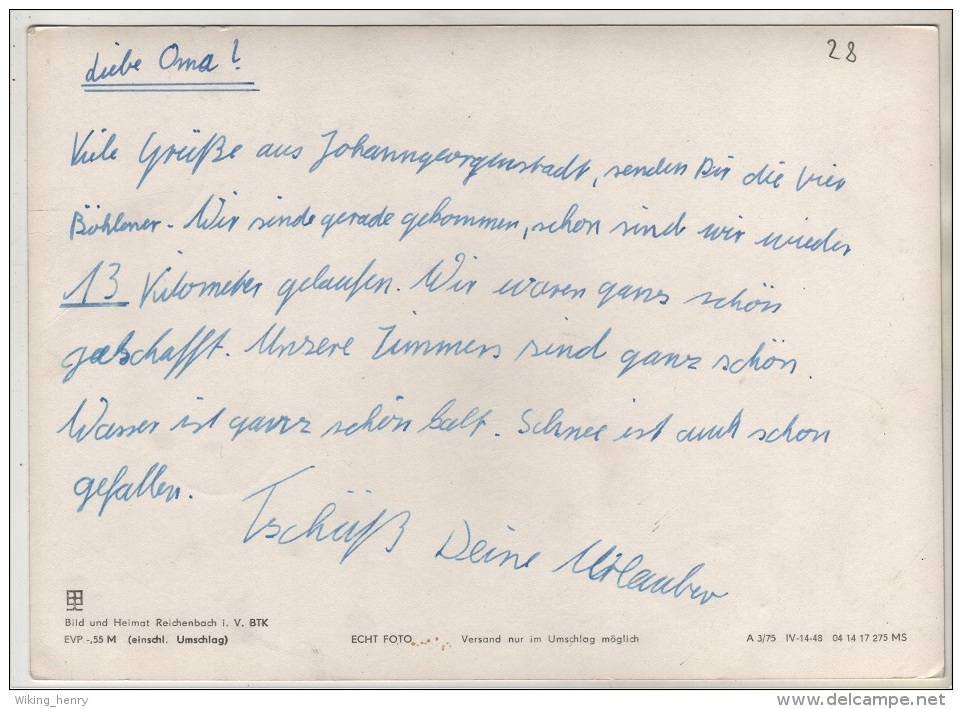 Liebe Oma!
28
Viele Grüße aus Johanngeorgenstadt, senden Dir die vier
Böhlener. Wir sinde gerade gekommen, schon sind wir wieder
13 Kilometer gelaufen. Wir waren ganz schön
geschafft. Unsere Zimmers sind ganz schön.
Wasser ist ganz schön kalt. Schnee ist auch schon
gefallen.
Tschüß Deine Urlauber
Bild und Heimat Reichenbach i. V. BTK
EVP -,55 M (einschl. Umschlag) ECHT FOTO Versand nur im Umschlag möglich A 3/75 IV-14-48 04 14 17 275 MS
Wiking_henry
www.delcampe.net